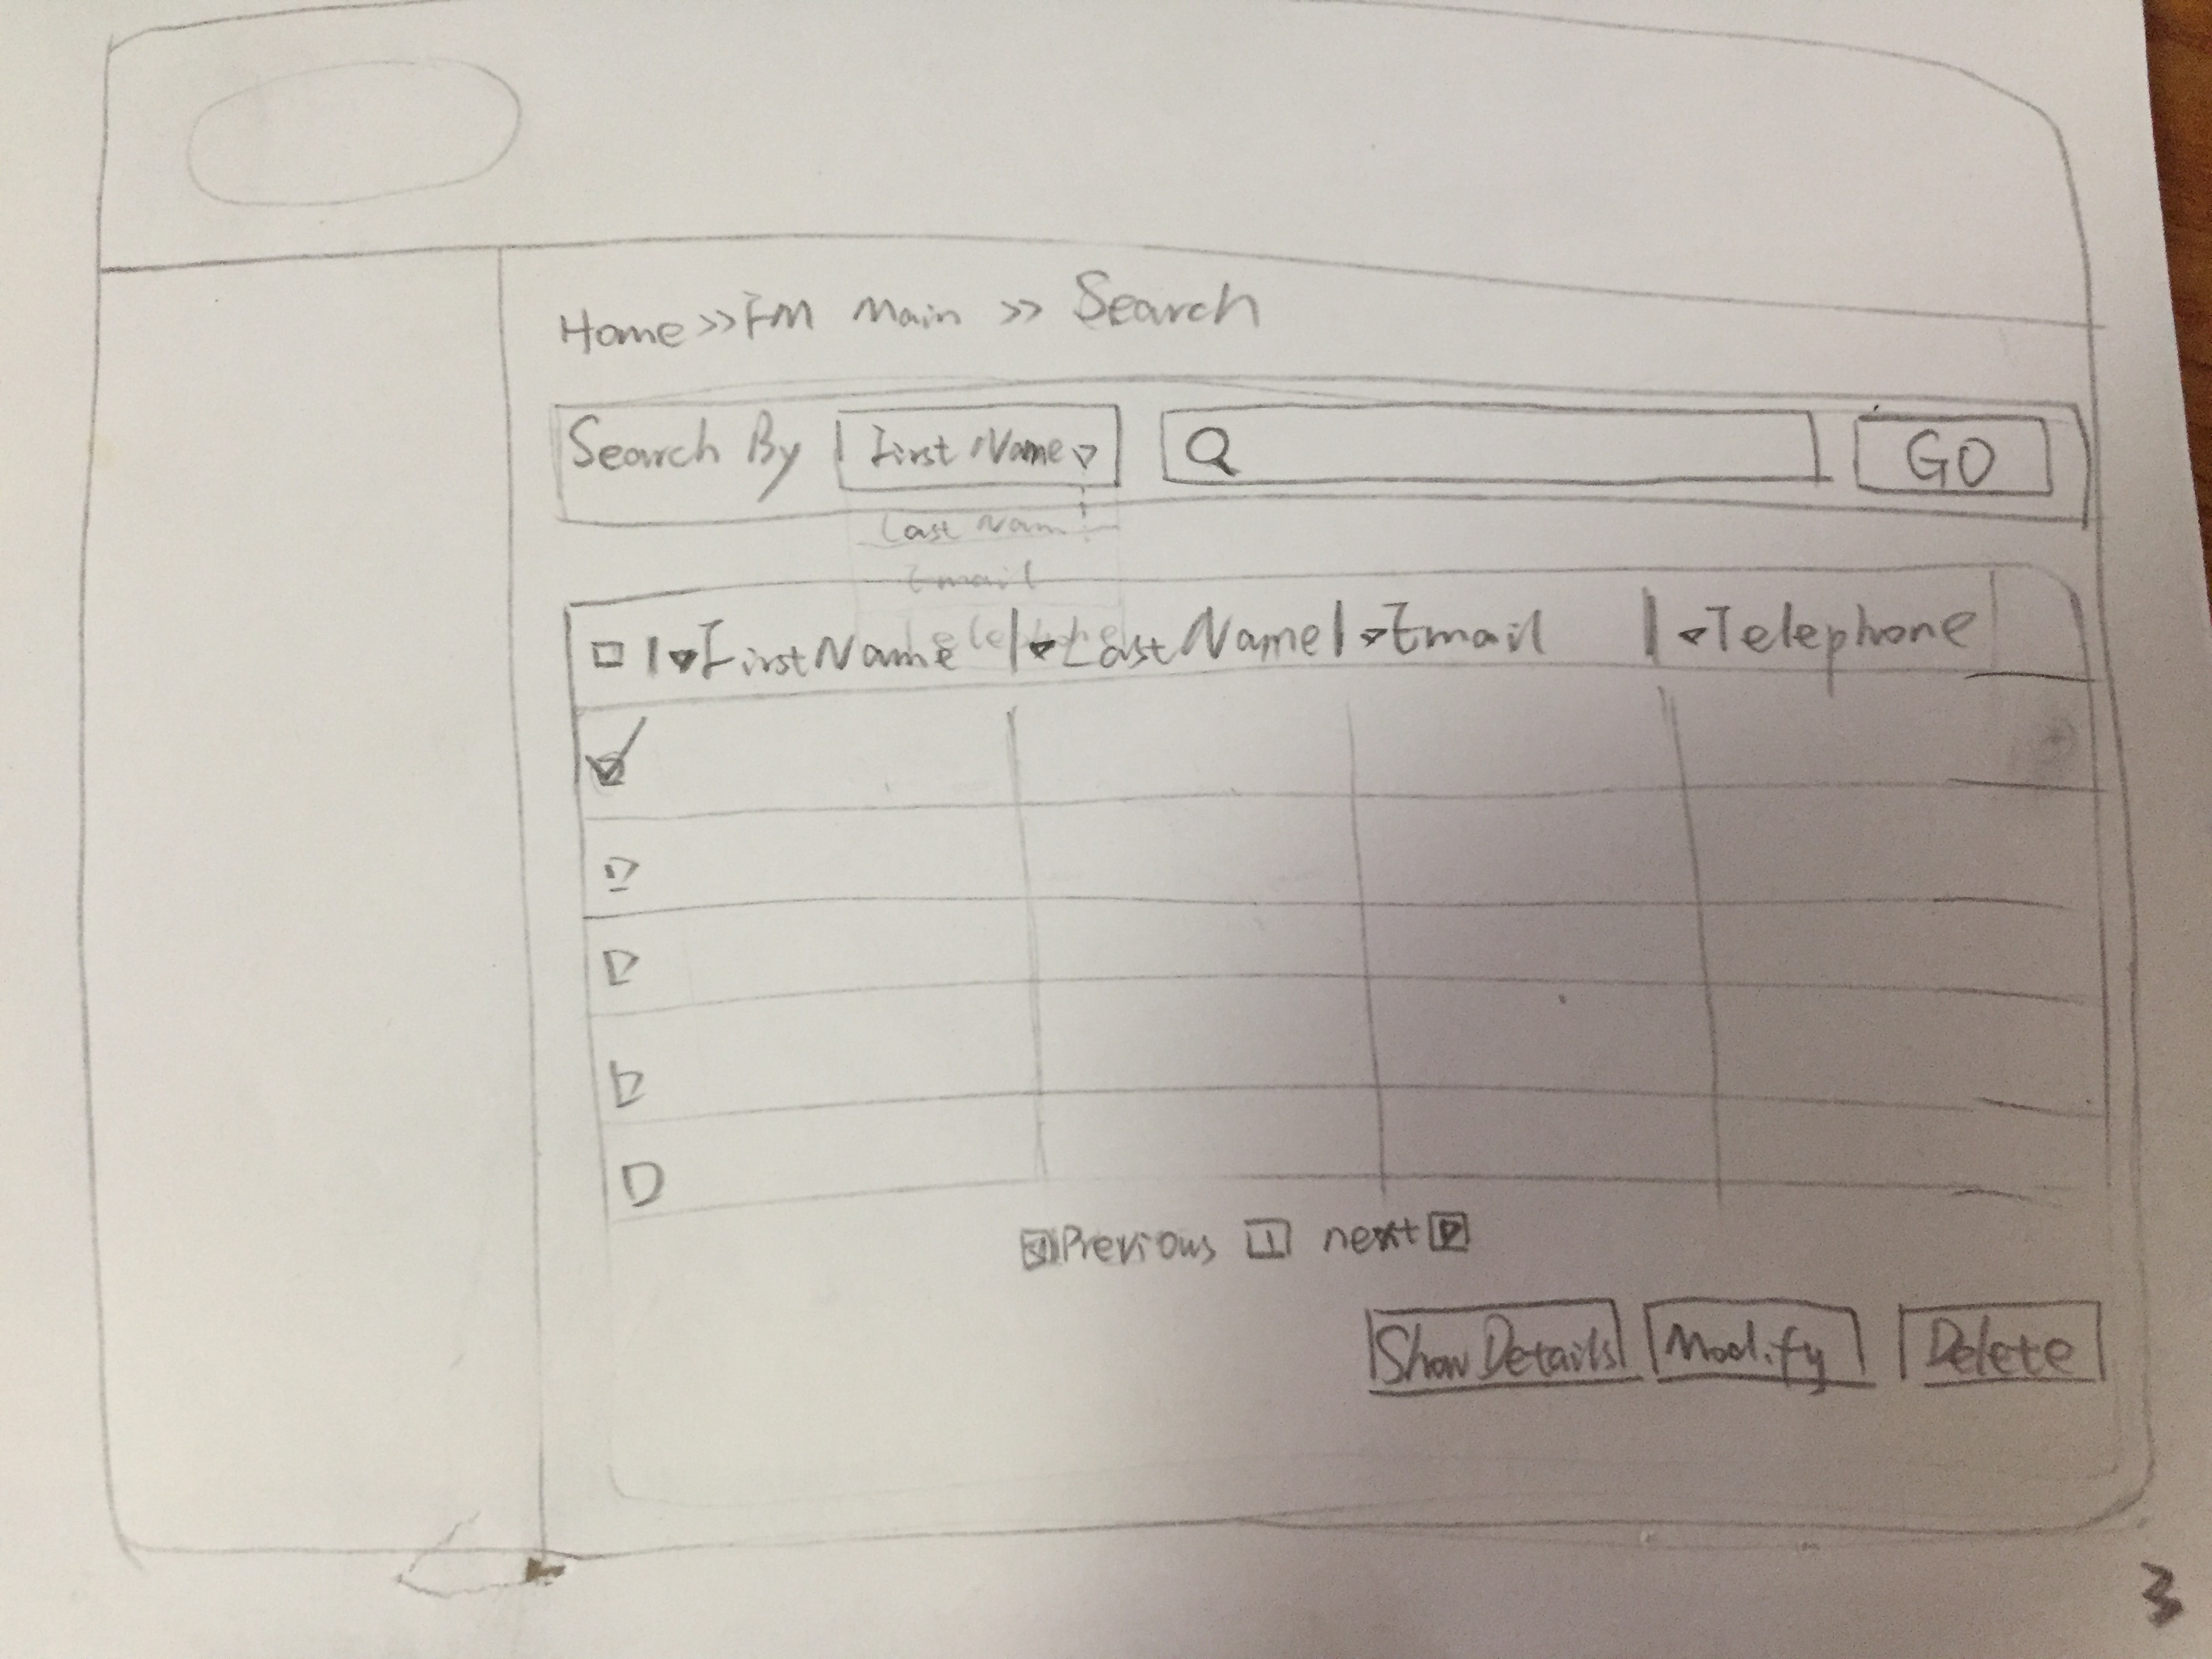 Home >> FM Main >> Search
Search By First Name GO
Last Nam
Email
Telephone
FirstName | LastName | Email | Telephone
Previous 1 next
Show Details Modify Delete
3